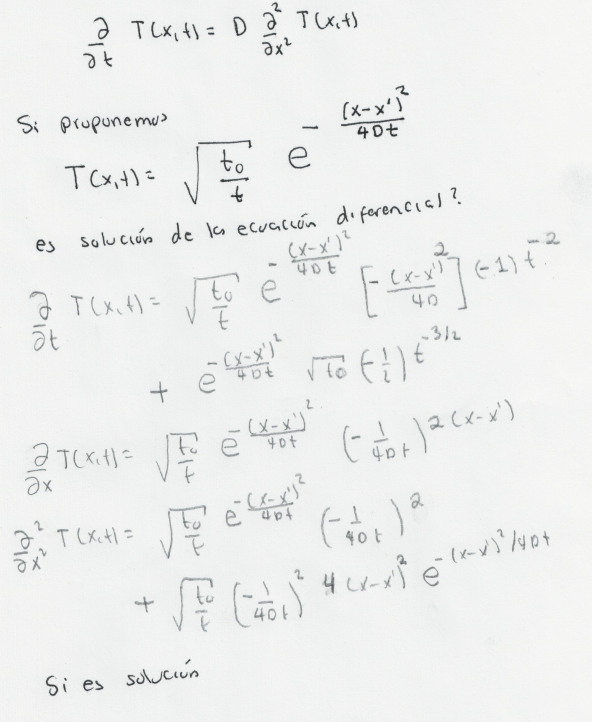 ∂/∂t T(x,t) = D ∂²/∂x² T(x,t)
Si proponemos
T(x,t) = √(t₀/t) e^(-(x-x')²/4Dt)
es solución de la ecuación diferencial?
∂/∂t T(x,t) = √(t₀/t) e^(-(x-x')²/4Dt) [-(x-x')²/4D] (-1) t^(-2)
+ e^(-(x-x')²/4Dt) √t₀ (-1/2) t^(-3/2)
∂/∂x T(x,t) = √(t₀/t) e^(-(x-x')²/4Dt) (-1/4Dt) 2(x-x')
∂²/∂x² T(x,t) = √(t₀/t) e^(-(x-x')²/4Dt) (-1/4Dt) 2
+ √(t₀/t) (-1/4Dt)² 4(x-x')² e^(-(x-x')²/4Dt)
Si es solución